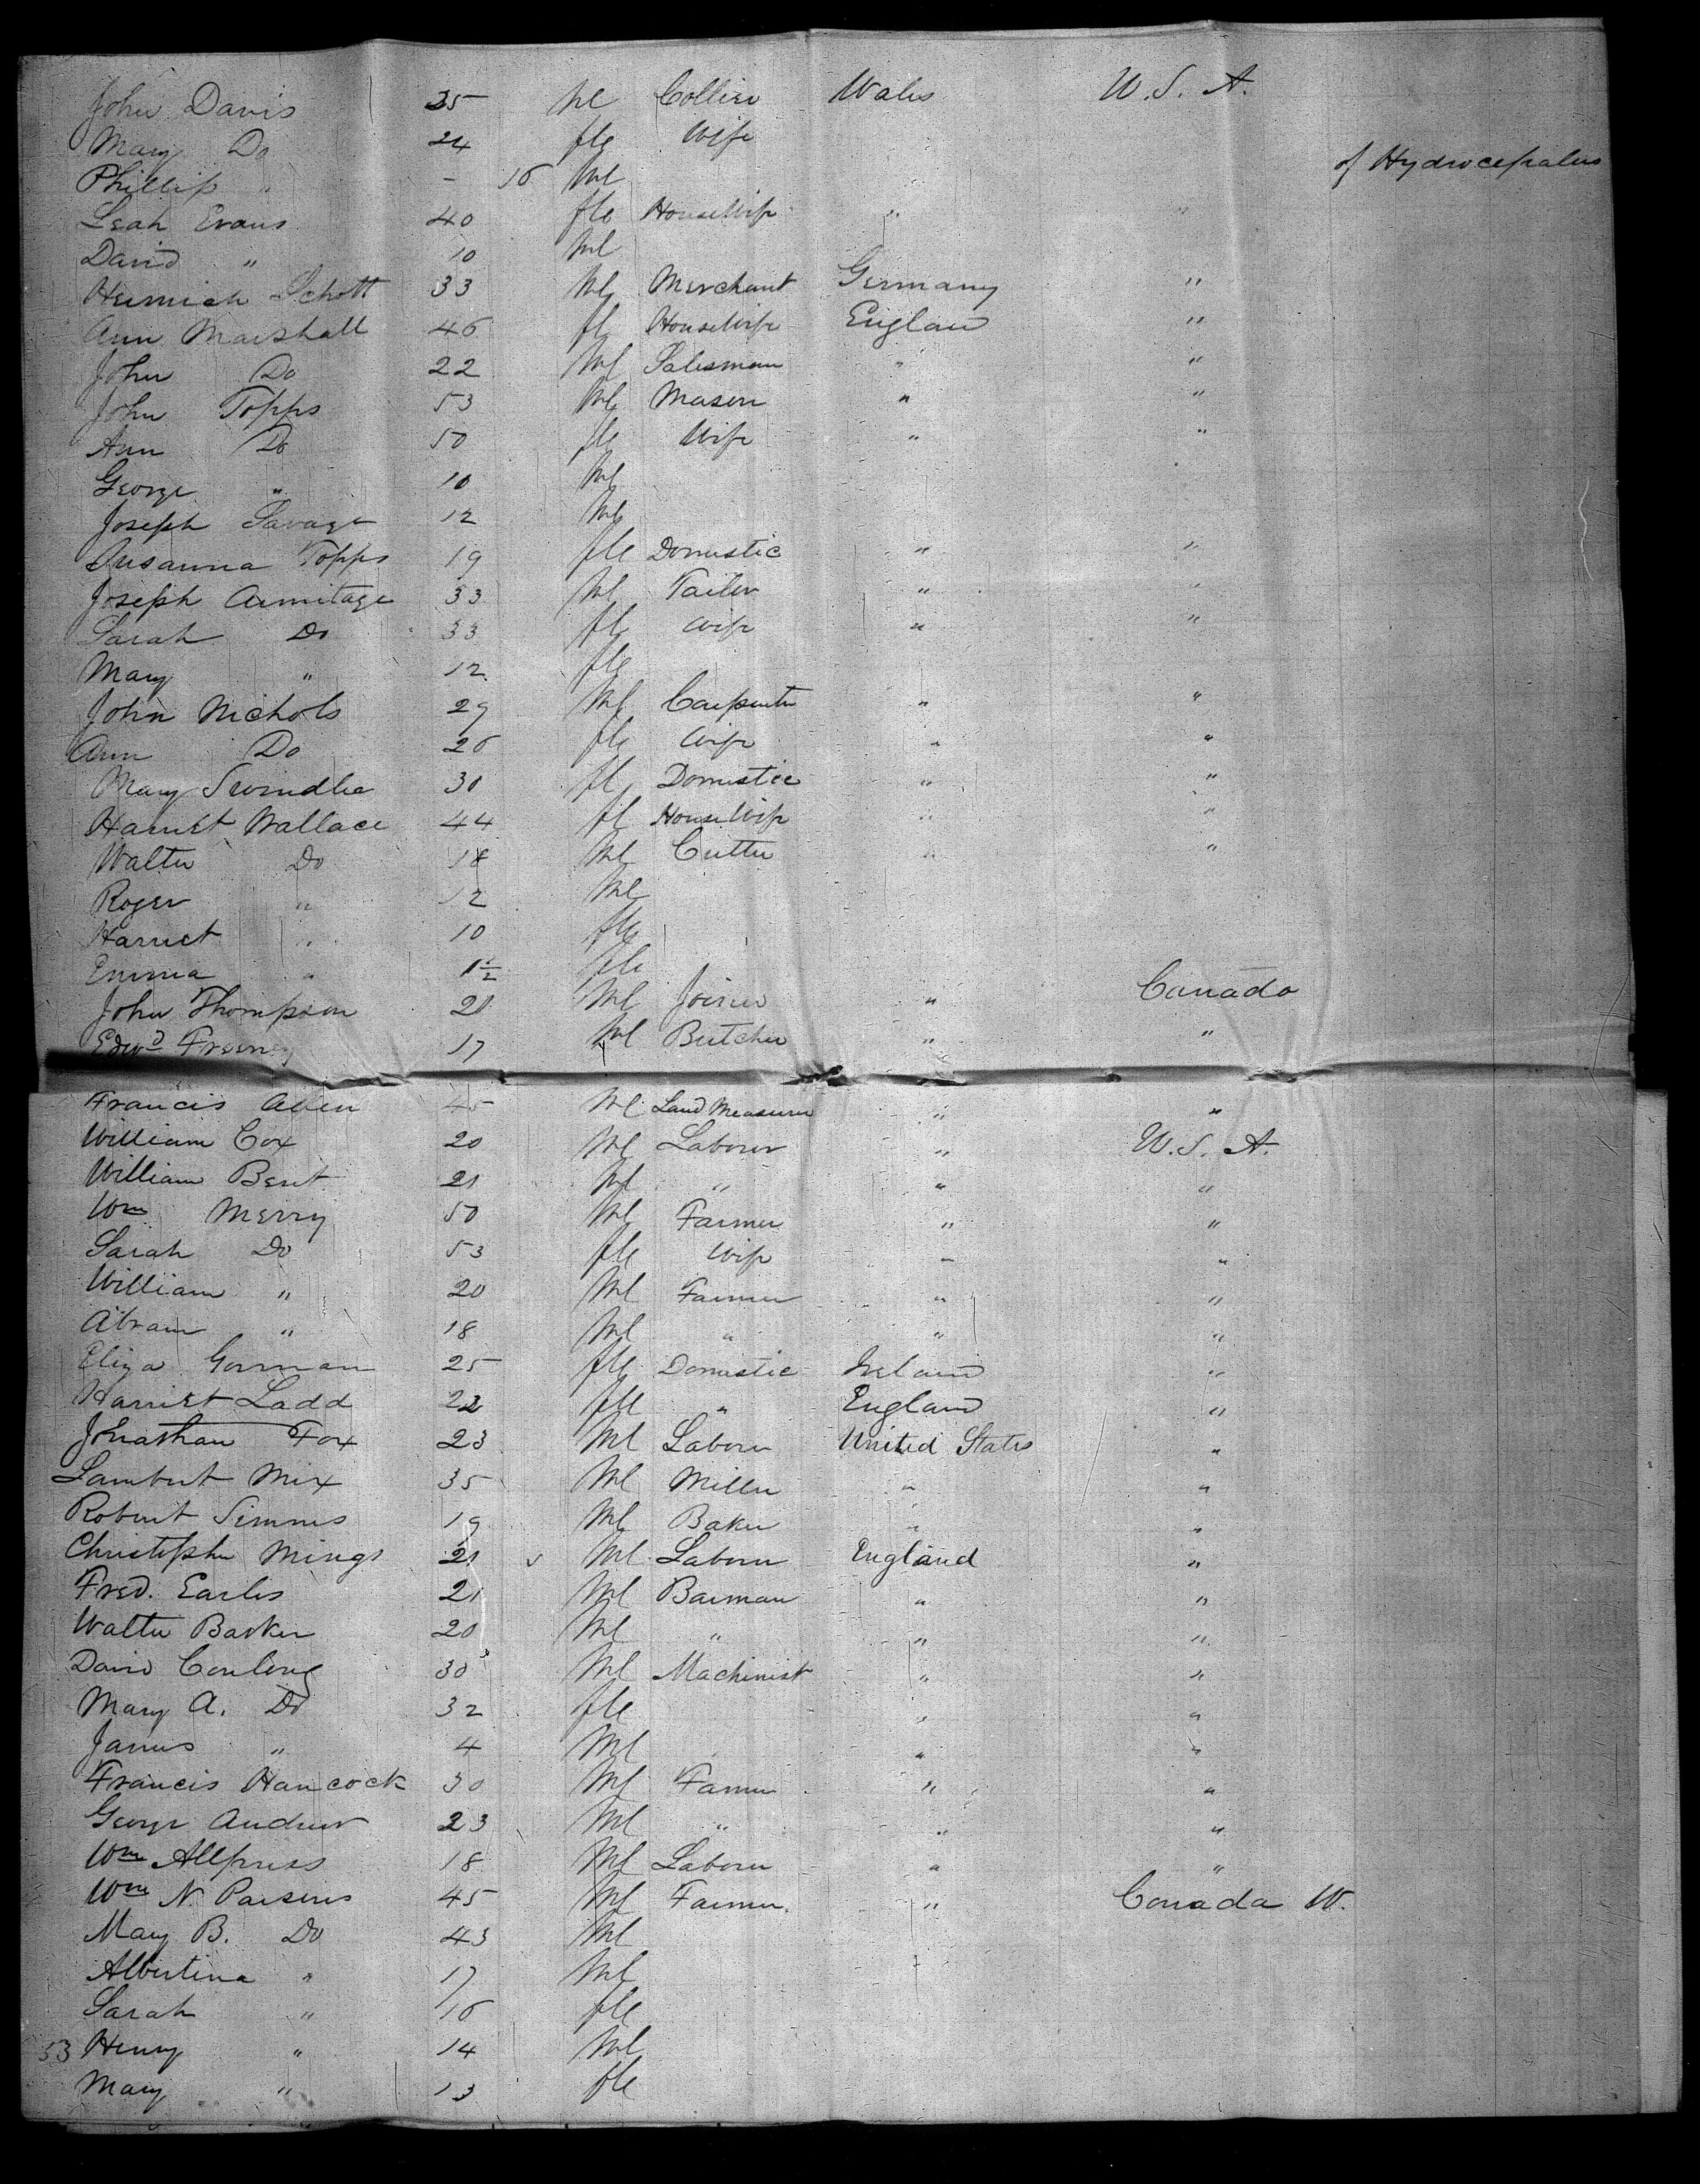 John Davis 35 Ml Collier Wales U.S.A.
Mary Do 24 fle Wife
Phillip " - 16 Ml of Hydrocephalus
Leah Evans 40 fle HouseWife " "
David " 10 Ml
Heinrich Schott 33 Ml Merchant Germany "
Ann Marshall 46 fl HouseWife England "
John Do 22 Ml Salesman " "
John Topps 53 Ml Mason " "
Ann Do 50 fle Wife " "
George " 10 Ml
Joseph Savage 12 Ml
Susanna Topps 19 fle Domestic " "
Joseph Armitage 33 Ml Tailor " "
Sarah Do 33 fle Wife " "
Mary " 12 fle
John Nichols 29 Ml Carpenter " "
Ann Do 26 fle Wife " "
Mary 30 fl Domestic " "
Harriet Wallace 44 fl HouseWife " "
Walter Do 18 Ml Cutter " "
Roger " 12 Ml
Harriet " 10 fle
Emma " 1½ fle
John Thompson 21 Ml Joiner " Canada
Edwd 17 Ml Butcher " "
Francis Allen 45 Ml Land Measurer " "
William Cox 20 Ml Laborer " U.S.A.
William Bent 21 Ml " " "
Wm Merry 50 Ml Farmer " "
Sarah Do 53 fle Wife " "
William " 20 Ml Farmer " "
Abram " 18 Ml " " "
Eliza Gorman 25 fle Domestic Ireland "
Harriet Ladd 22 fle " England "
Jonathan Fox 23 Ml Laborer United States "
Lambert Mix 35 Ml Miller " "
Robert Simms 19 Ml Baker " "
Christopher Mings 21 Ml Laborer England "
Fred. Earles 21 Ml Barman " "
Walter Barker 20 Ml " " "
David 30 Ml Machinist " "
Mary A. Do 32 fle " "
James " 4 Ml " "
Francis Hancock 30 Ml Farmer " "
George Andrew 23 Ml " " "
Wm Allpress 18 Ml Laborer " "
Wm N. Parsons 45 Ml Farmer. " Canada W.
Mary B. Do 43 Ml
Albertina " 17 Ml
Sarah " 16 fle
53 Henry " 14 Ml
Mary " 13 fle